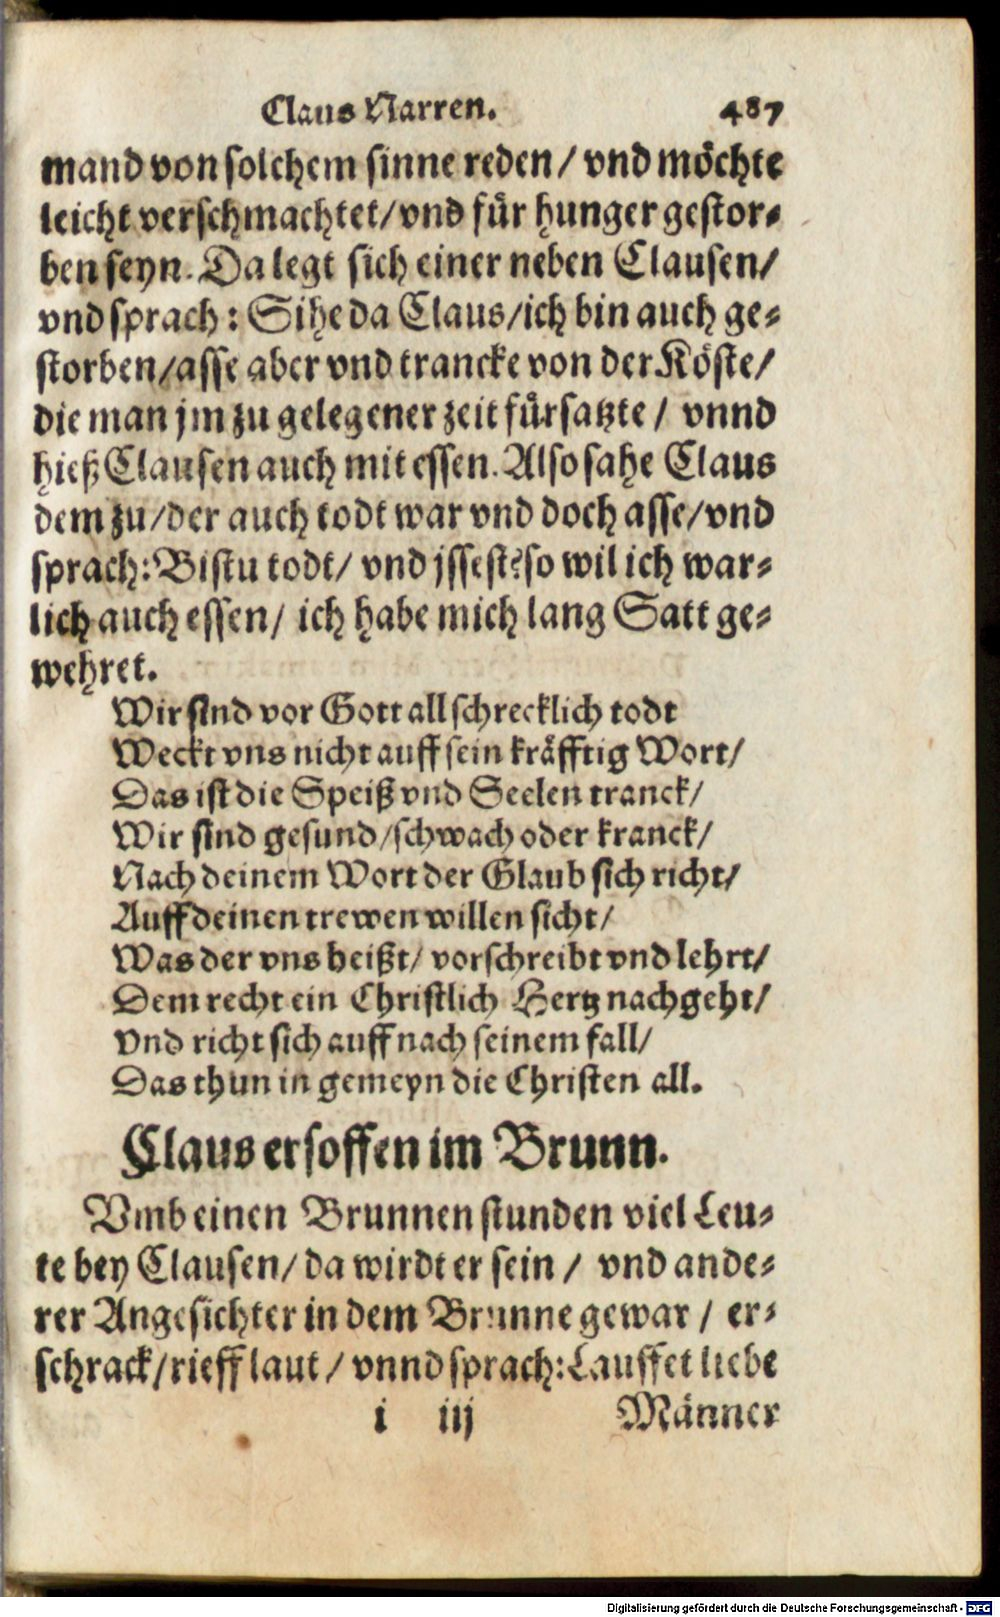 Claus Narren. 487
mand von solchem sinne reden / vnd möchte
leicht verschmachtet / vnd für hunger gestor-
ben seyn. Da legt sich einer neben Clausen /
vnd sprach : Sihe da Claus / ich bin auch ge-
storben / asse aber vnd trancke von der Köste /
die man jm zu gelegener zeit fürsatzte / vnnd
hieß Clausen auch mit essen. Also sahe Claus
dem zu / der auch todt war vnd doch asse / vnd
sprach: Bistu todt / vnd jssest? so wil ich war-
lich auch essen / ich habe mich lang Satt ge-
wehret.
Wir sind vor Gott all schrecklich todt
Weckt vns nicht auff sein kräfftig Wort /
Das ist die Speiß vnd Seelen tranck /
Wir sind gesund / schwach oder kranck /
Nach deinem Wort der Glaub sich richt /
Auff deinen trewen willen sicht /
Was der vns heißt / vorschreibt vnd lehrt /
Dem recht ein Christlich Hertz nachgeht /
Vnd richt sich auff nach seinem fall /
Das thun in gemeyn die Christen all.
Claus ersoffen im Brunn.
Vmb einen Brunnen stunden viel Leu-
te bey Clausen / da wirdt er sein / vnd ande-
rer Angesichter in dem Brunne gewar / er-
schrack / rieff laut / vnnd sprach: Lauffet liebe
i iij Männer
Digitalisierung gefördert durch die Deutsche Forschungsgemeinschaft - DFG